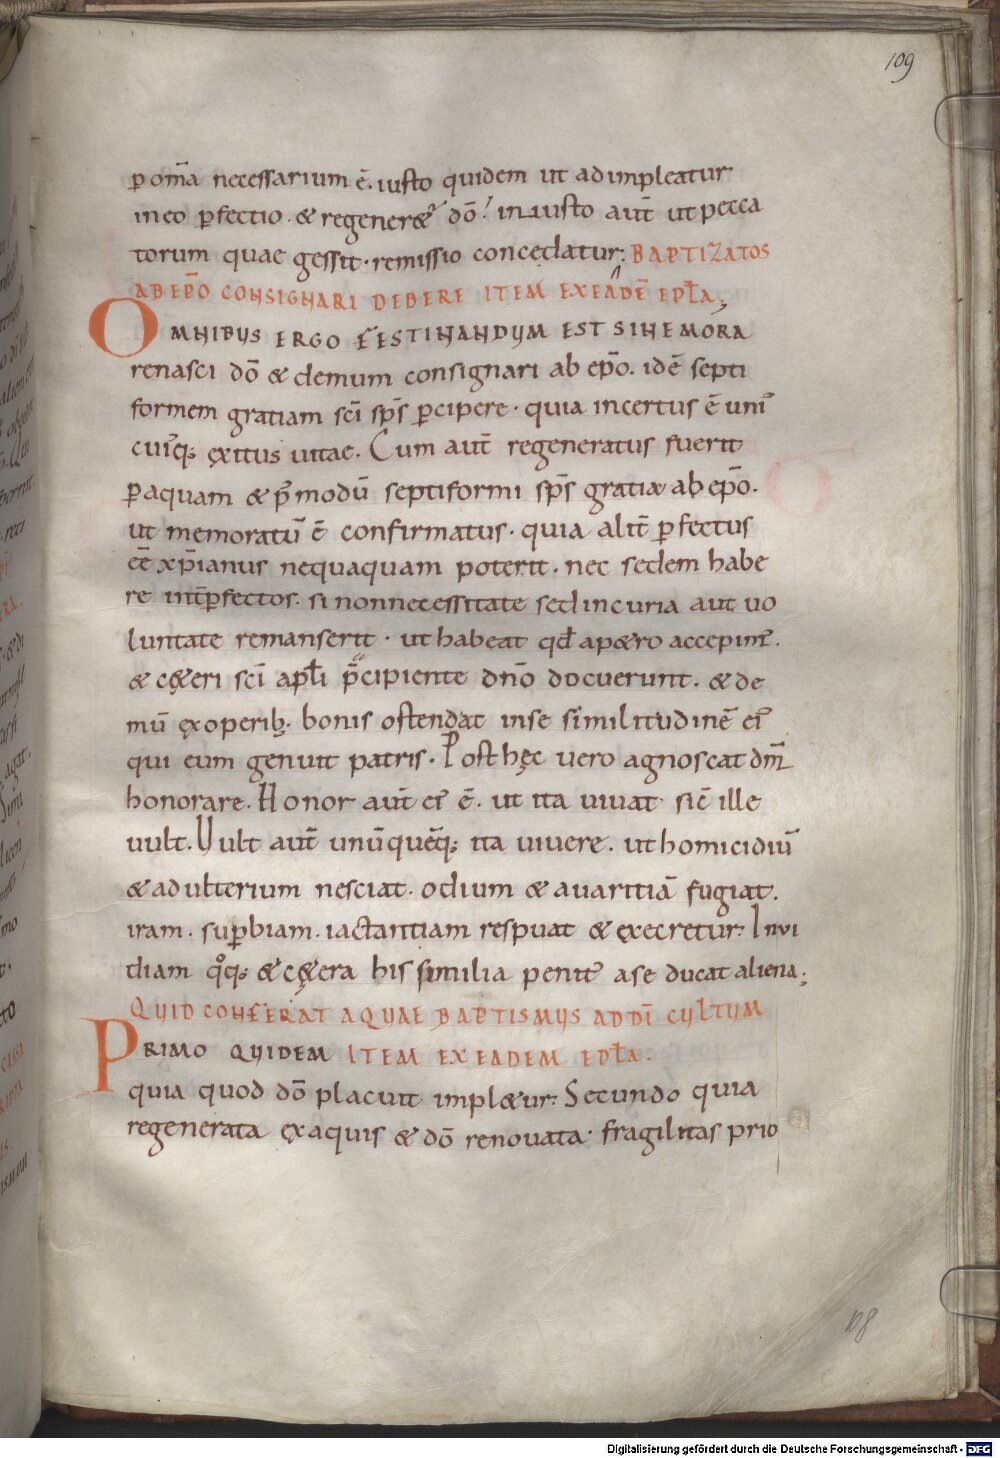 109
ꝑ om̄a necessarium ē. iusto quidem ut adimpleatur
in eo ꝑfectio. & regener& dō. iniusto aut̄ ut pecca
torum quae gessit. remissio concedatur; BAPTIZATOS
AB EPŌ CONSIGNARI DEBERE ITEM EX EADĒ EPŁA;
OMNIBUS ERGO FESTINANDUM EST SINE MORA
renasci dō & demum consignari ab epō. idē septi
formem gratiam sc̄i sp̄s ꝑcipere. quia incertus ē uni
cuiq; ęxitus uitae. Cum aut̄ regeneratus fuerit
ꝑ aquam & p̄modū septiformi sp̄s gratia ab epō.
ut memoratū ē confirmatus. quia alit̄ ꝑfectus
eē xp̄ianus nequaquam poterit. nec sedem habe
re int̄ ꝑfectos. si non necessitate sed incuria aut uo
luntate remanserit. ut habeat qd̄ a p&ro accepim᷒.
& c&eri sc̄i apłi p̄cipiente dn̄o docuerunt. & de
mū ęx operib; bonis ostendat in se similitudinē ei᷒
qui eum genuit patris. Post hęc uero agnoscat dm̄
honorare. Honor aut̄ ei᷒ ē. ut ita uiuat sic̄ ille
uult. Uult aut̄ unūquēq; ita uiuere. ut homicidiū
& adulterium nesciat. odium & auaritiā fugiat.
iram. suꝑbiam. iactantiam respuat & ęxecretur. Inui
diam qͦq; & c&era his similia penit᷒ a se ducat aliena;
QUID CONFERAT AQUAE BAPTISMUS AD DĪ CULTUM
PRIMO QUIDEM ITEM EX EADEM EPŁA.
quia quod dō placuit impl&ur. Secundo quia
regenerata ęx aquis & dō renouata. fragilitas prio
108
Digitalisierung gefördert durch die Deutsche Forschungsgemeinschaft - DFG